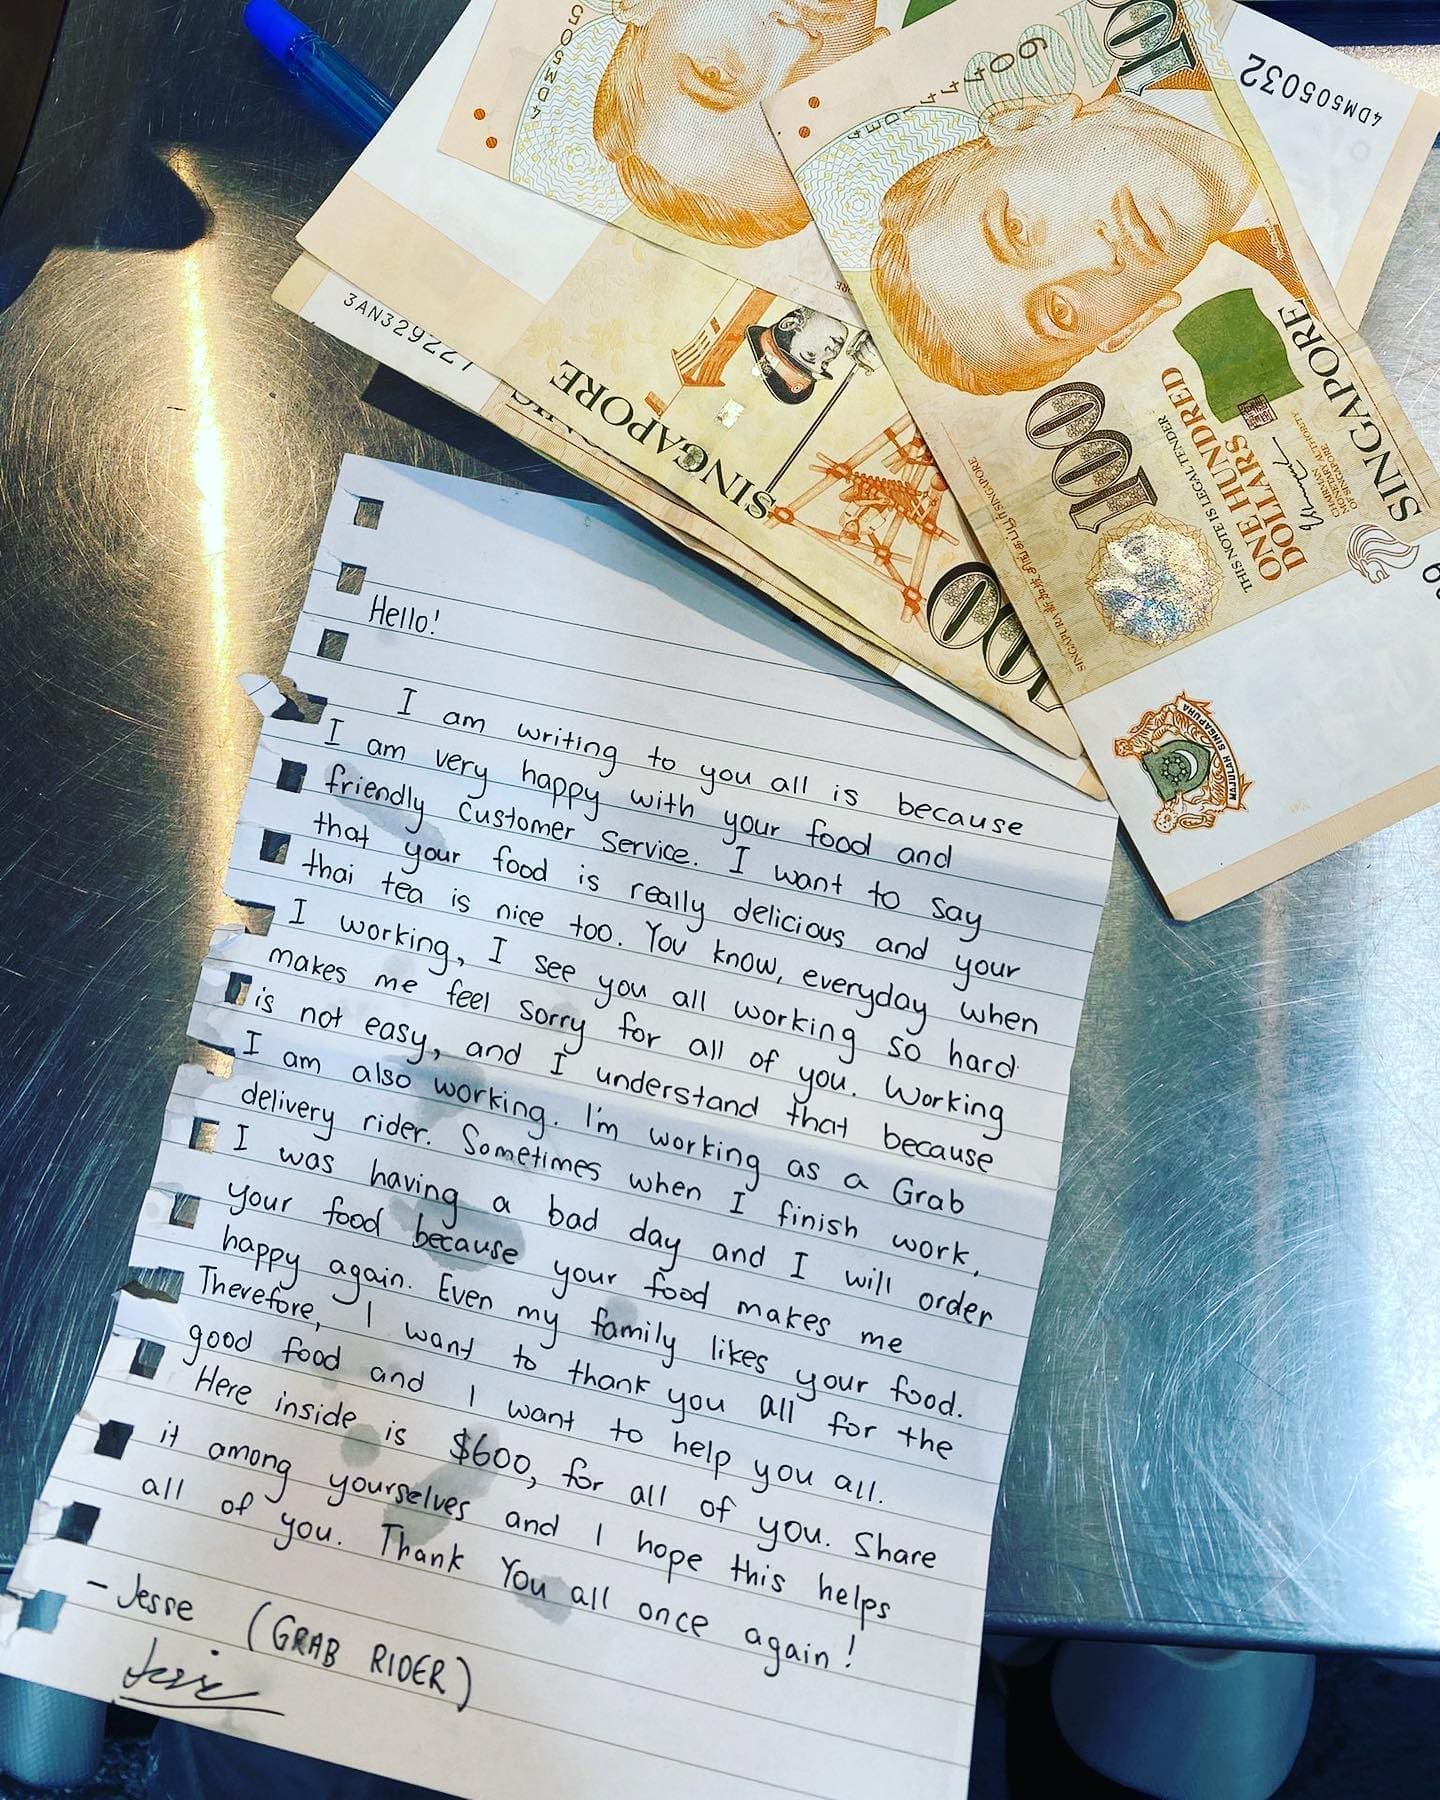 4DM505032
4DM505
SINGAPORE
100
3AN329227
SINGAPORE
100
SINGAPURA 新加坡 சிங்கப்பூர் SINGAPORE
100
THIS NOTE IS LEGAL TENDER
ONE HUNDRED
DOLLARS
CHAIRMAN
MONETARY AUTHORITY
OF SINGAPORE
SINGAPORE
SINGAPORE
MAJULAH SINGAPURA
Hello!
I am writing to you all is because
I am very happy with your food and
friendly Customer Service. I want to say
that your food is really delicious and your
thai tea is nice too. You know, everyday when
I working, I see you all working so hard
makes me feel sorry for all of you. Working
is not easy, and I understand that because
I am also working. I'm working as a Grab
delivery rider. Sometimes when I finish work,
I was having a bad day and I will order
your food because your food makes me
happy again. Even my family likes your food.
Therefore, I want to thank you all for the
good food and I want to help you all.
Here inside is $600, for all of you. Share
it among yourselves and I hope this helps
all of you. Thank You all once again!
- Jesse (GRAB RIDER)